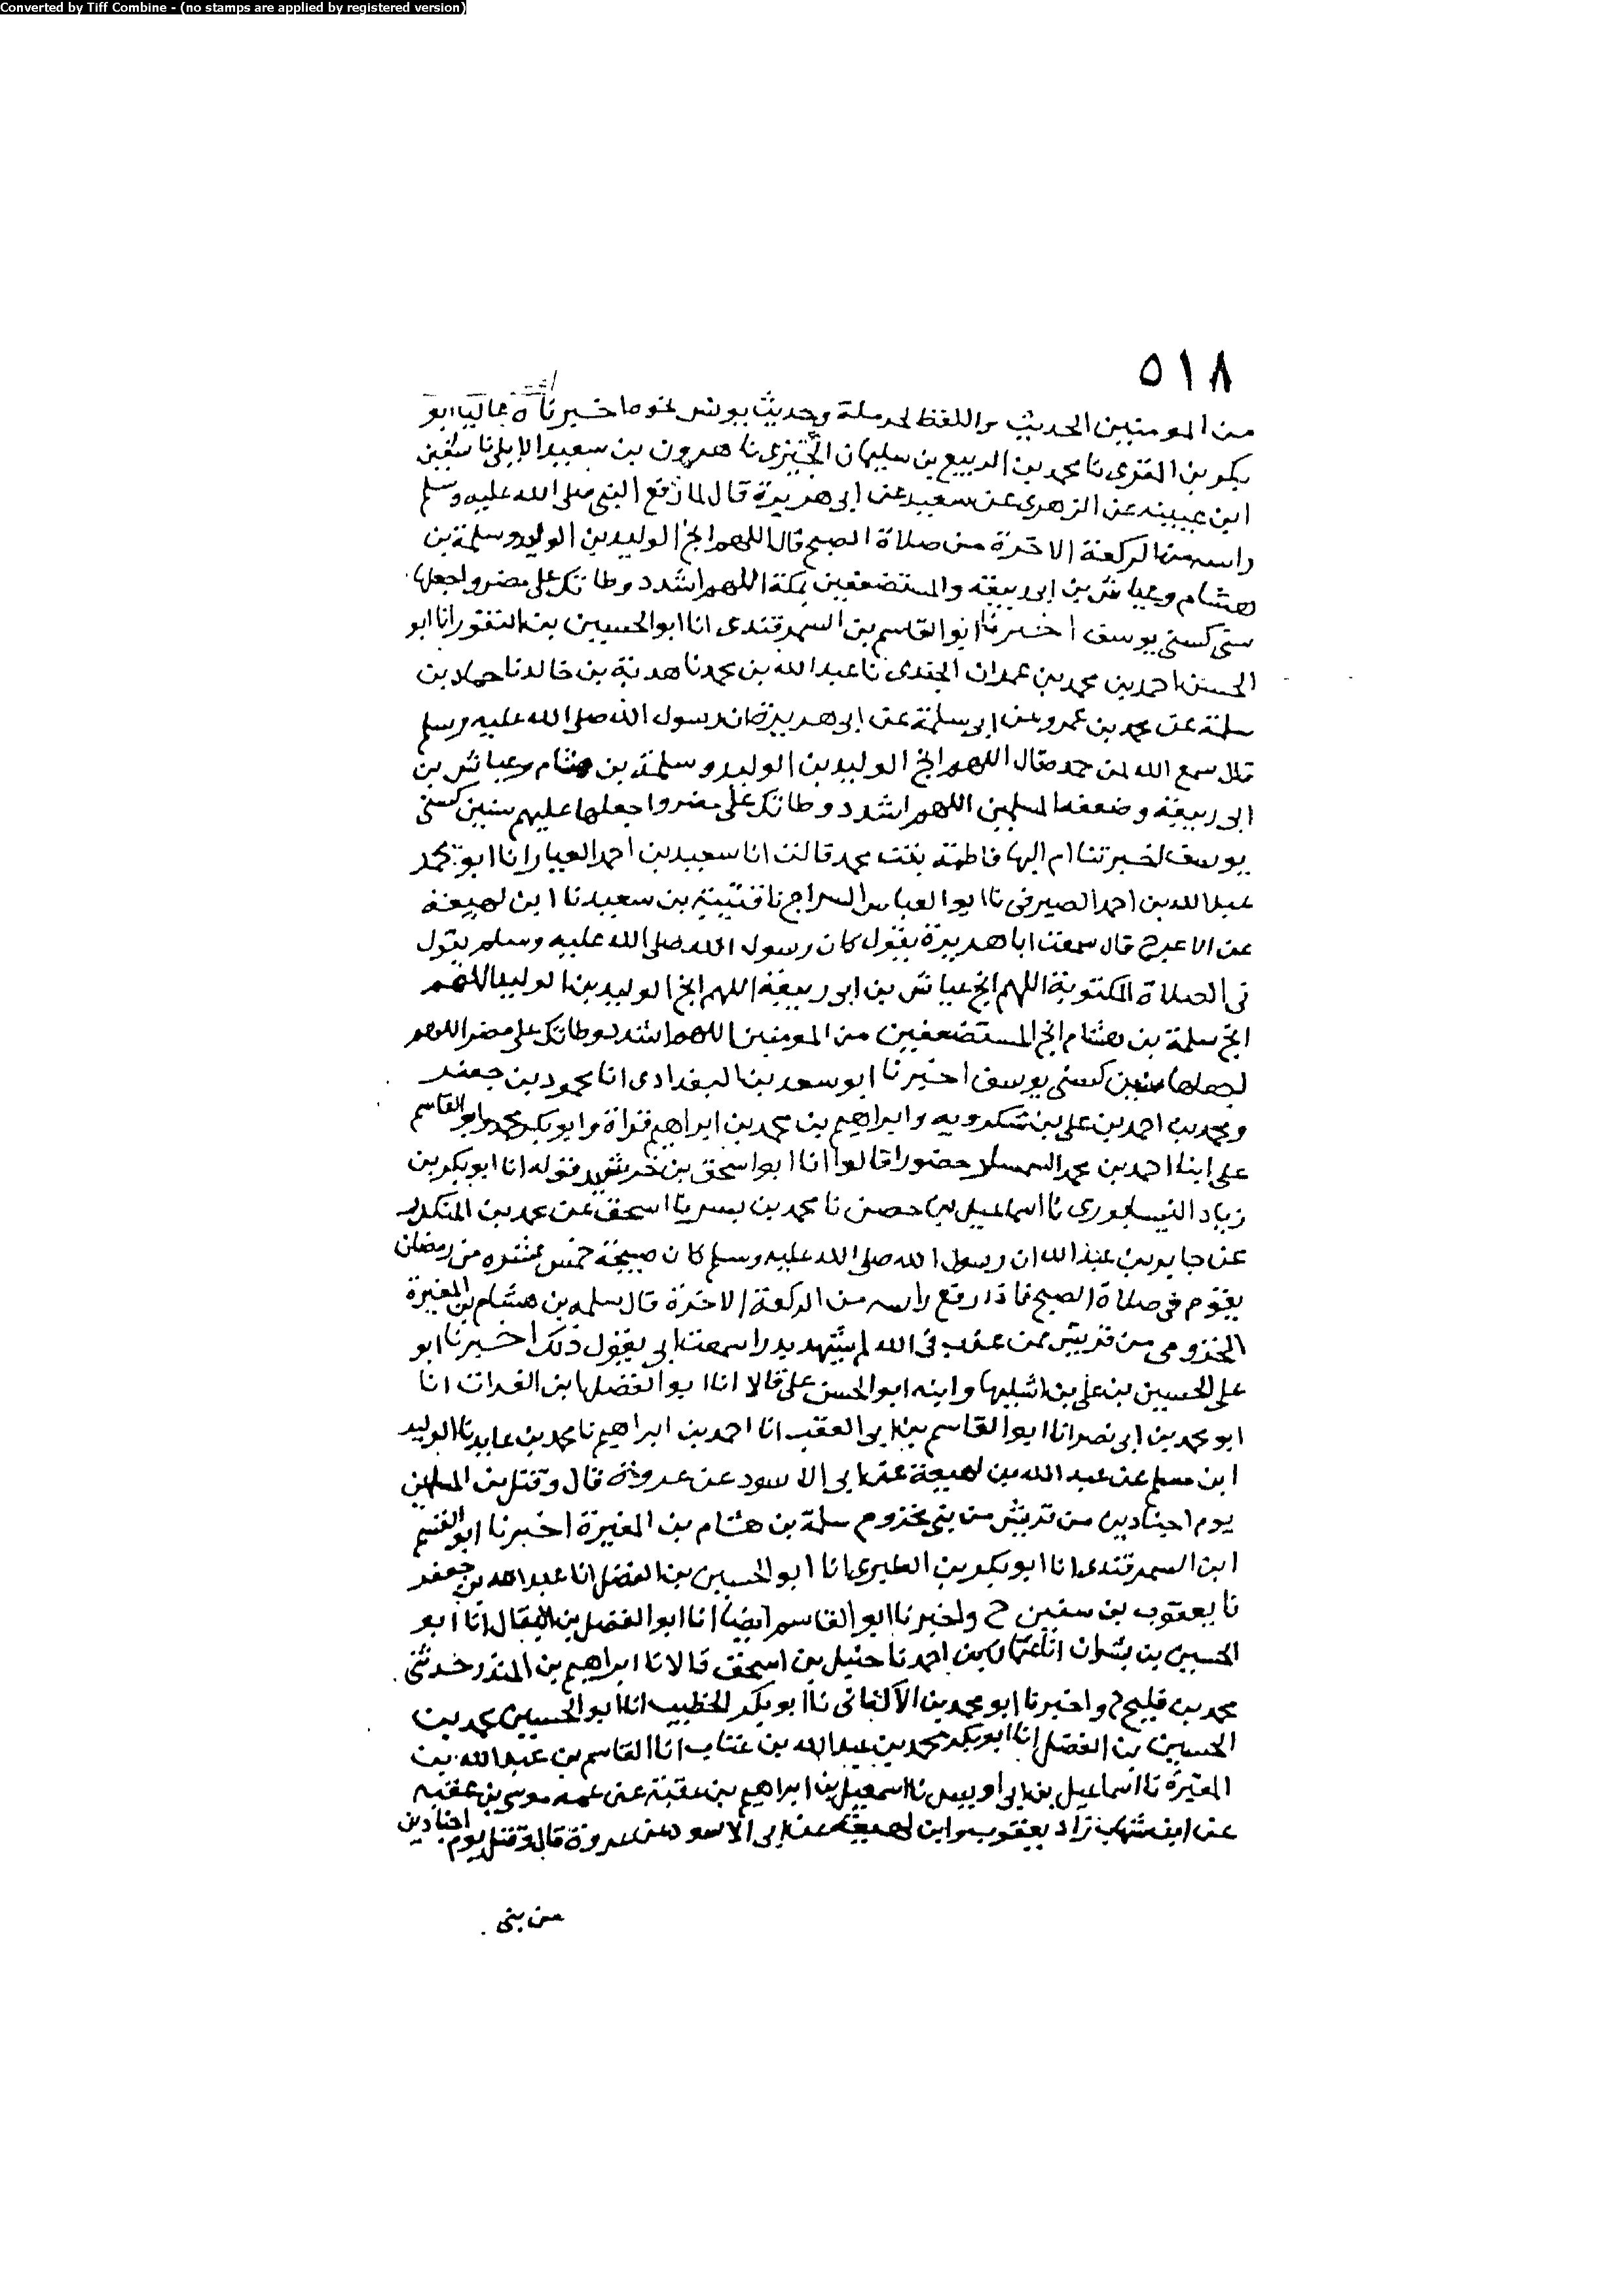 Converted by Tiff Combine - (no stamps are applied by registered version)
٥١٨
من المومنين الحديث واللفظ لحرملة وحديث يونس نحو ما خبرناه عاليا ابو
بكر بن المقرى نا محمد بن الربيع بن سليمان الجيزى نا هرون بن سعيد الايلى نا سفين
ابن عيينه عن الزهرى عن سعيد عن ابى هريرة قال لما رفع النبى صلى الله عليه وسلم
راسه من الركعة الاخرة من صلاة الصبح قال اللهم انج الوليد بن الوليد وسلمة بن
هشام وعياش بن ابى ربيعة والمستضعفين بمكة اللهم اشدد وطاتك على مضر واجعلها
سنى كسنى يوسف اخبرنا ابو القاسم بن السمرقندى انا ابو الحسين بن النقور انا ابو
الحسن احمد بن محمد بن عمران الجندى نا عبد الله بن محمد نا هدبة بن خالد نا حماد بن
سلمة عن محمد بن عمرو عن ابى سلمة عن ابى هريرة ان رسول الله صلى الله عليه وسلم
قال سمع الله لمن حمده فقال اللهم انج الوليد بن الوليد وسلمة بن هشام وعياش بن
ابى ربيعة وضعفه المسلمين اللهم اشدد وطاتك على مضر واجعلها عليهم سنين كسنى
يوسف اخبرتنا ام البها فاطمة بنت محمد قالت انا سعيد بن احمد العيار انا ابو محمد
عبد الله بن احمد الصيرفى نا ابو العباس السراج نا قتيبة بن سعيد نا ابن لهيعة
عن الاعرج قال سمعت ابا هريرة يقول كان رسول الله صلى الله عليه وسلم يقول
فى الصلاة المكتوبة اللهم انج عياش بن ابى ربيعة اللهم انج الوليد بن الوليد اللهم
انج سلمة بن هشام انج المستضعفين من المومنين اللهم اشدد وطاتك على مضر اللهم
اجعلها سنين كسنى يوسف اخبرنا ابو سعد بن البغدادى انا محمود بن جعفر
ومحمد بن احمد بن على بن شكرويه وابراهيم بن محمد بن ابراهيم قراة وابو بكر محمد وابو القاسم
على ابنا احمد بن محمد السمسار حضورا قالوا انا ابو اسحق بن خرشيد قوله انا ابو بكر بن
زياد النيسابورى نا اسماعيل بن حصن نا محمد بن بسر نا اسحق عن محمد بن المنكدر
عن جابر بن عبد الله ان رسول الله صلى الله عليه وسلم كان صبيحة خمس عشره من رمضان
يقوم فى صلاة الصبح فاذا رفع راسه من الركعة الاخرة قال سلمه بن هشام بن المغيرة
المخزومى من قريش ممن عذب فى الله لم يشهد بدرا سمعت ابى يقول ذلك اخبرنا ابو
على الحسين بن على بن اشليها وابنه ابو الحسن على قالا انا ابو الفضل بن الفرات انا
ابو محمد بن ابى نصر انا ابو القاسم بن ابى العقب انا احمد بن ابراهيم نا محمد بن عايد نا الوليد
ابن مسلم عن عبد الله بن لهيعة عن ابى الاسود عن عروة قال وقتل من المسلمين
يوم اجنادين من قريش من بنى مخزوم سلمة بن هشام بن المغيرة اخبرنا ابو القسم
ابن السمرقندى انا ابو بكر بن الطبرى انا ابو الحسين بن الفضل انا عبد الله بن جعفر
نا يعقوب بن سفين ح واخبرنا ابو القاسم ايضا انا ابو الفضل بن البقال انا ابو
الحسين بن بشران انا عثمان بن احمد نا حنبل بن اسحق قالا نا ابراهيم بن المنذر حدثنى
محمد بن فليح ح واخبرنا ابو محمد بن الاكفانى نا ابو بكر الخطيب انا ابو الحسين محمد بن
الحسين بن الفضل انا ابو بكر محمد بن عبد الله بن عتاب انا القاسم بن عبد الله بن
المغيرة نا اسماعيل بن ابى اويس نا اسمعيل بن ابراهيم بن عقبة عن عمه موسى بن عقبه
عن ابن شهاب زاد يعقوب وابن لهيعة عن ابى الاسود عن عروة قال وقتل يوم اجنادين
من بنى